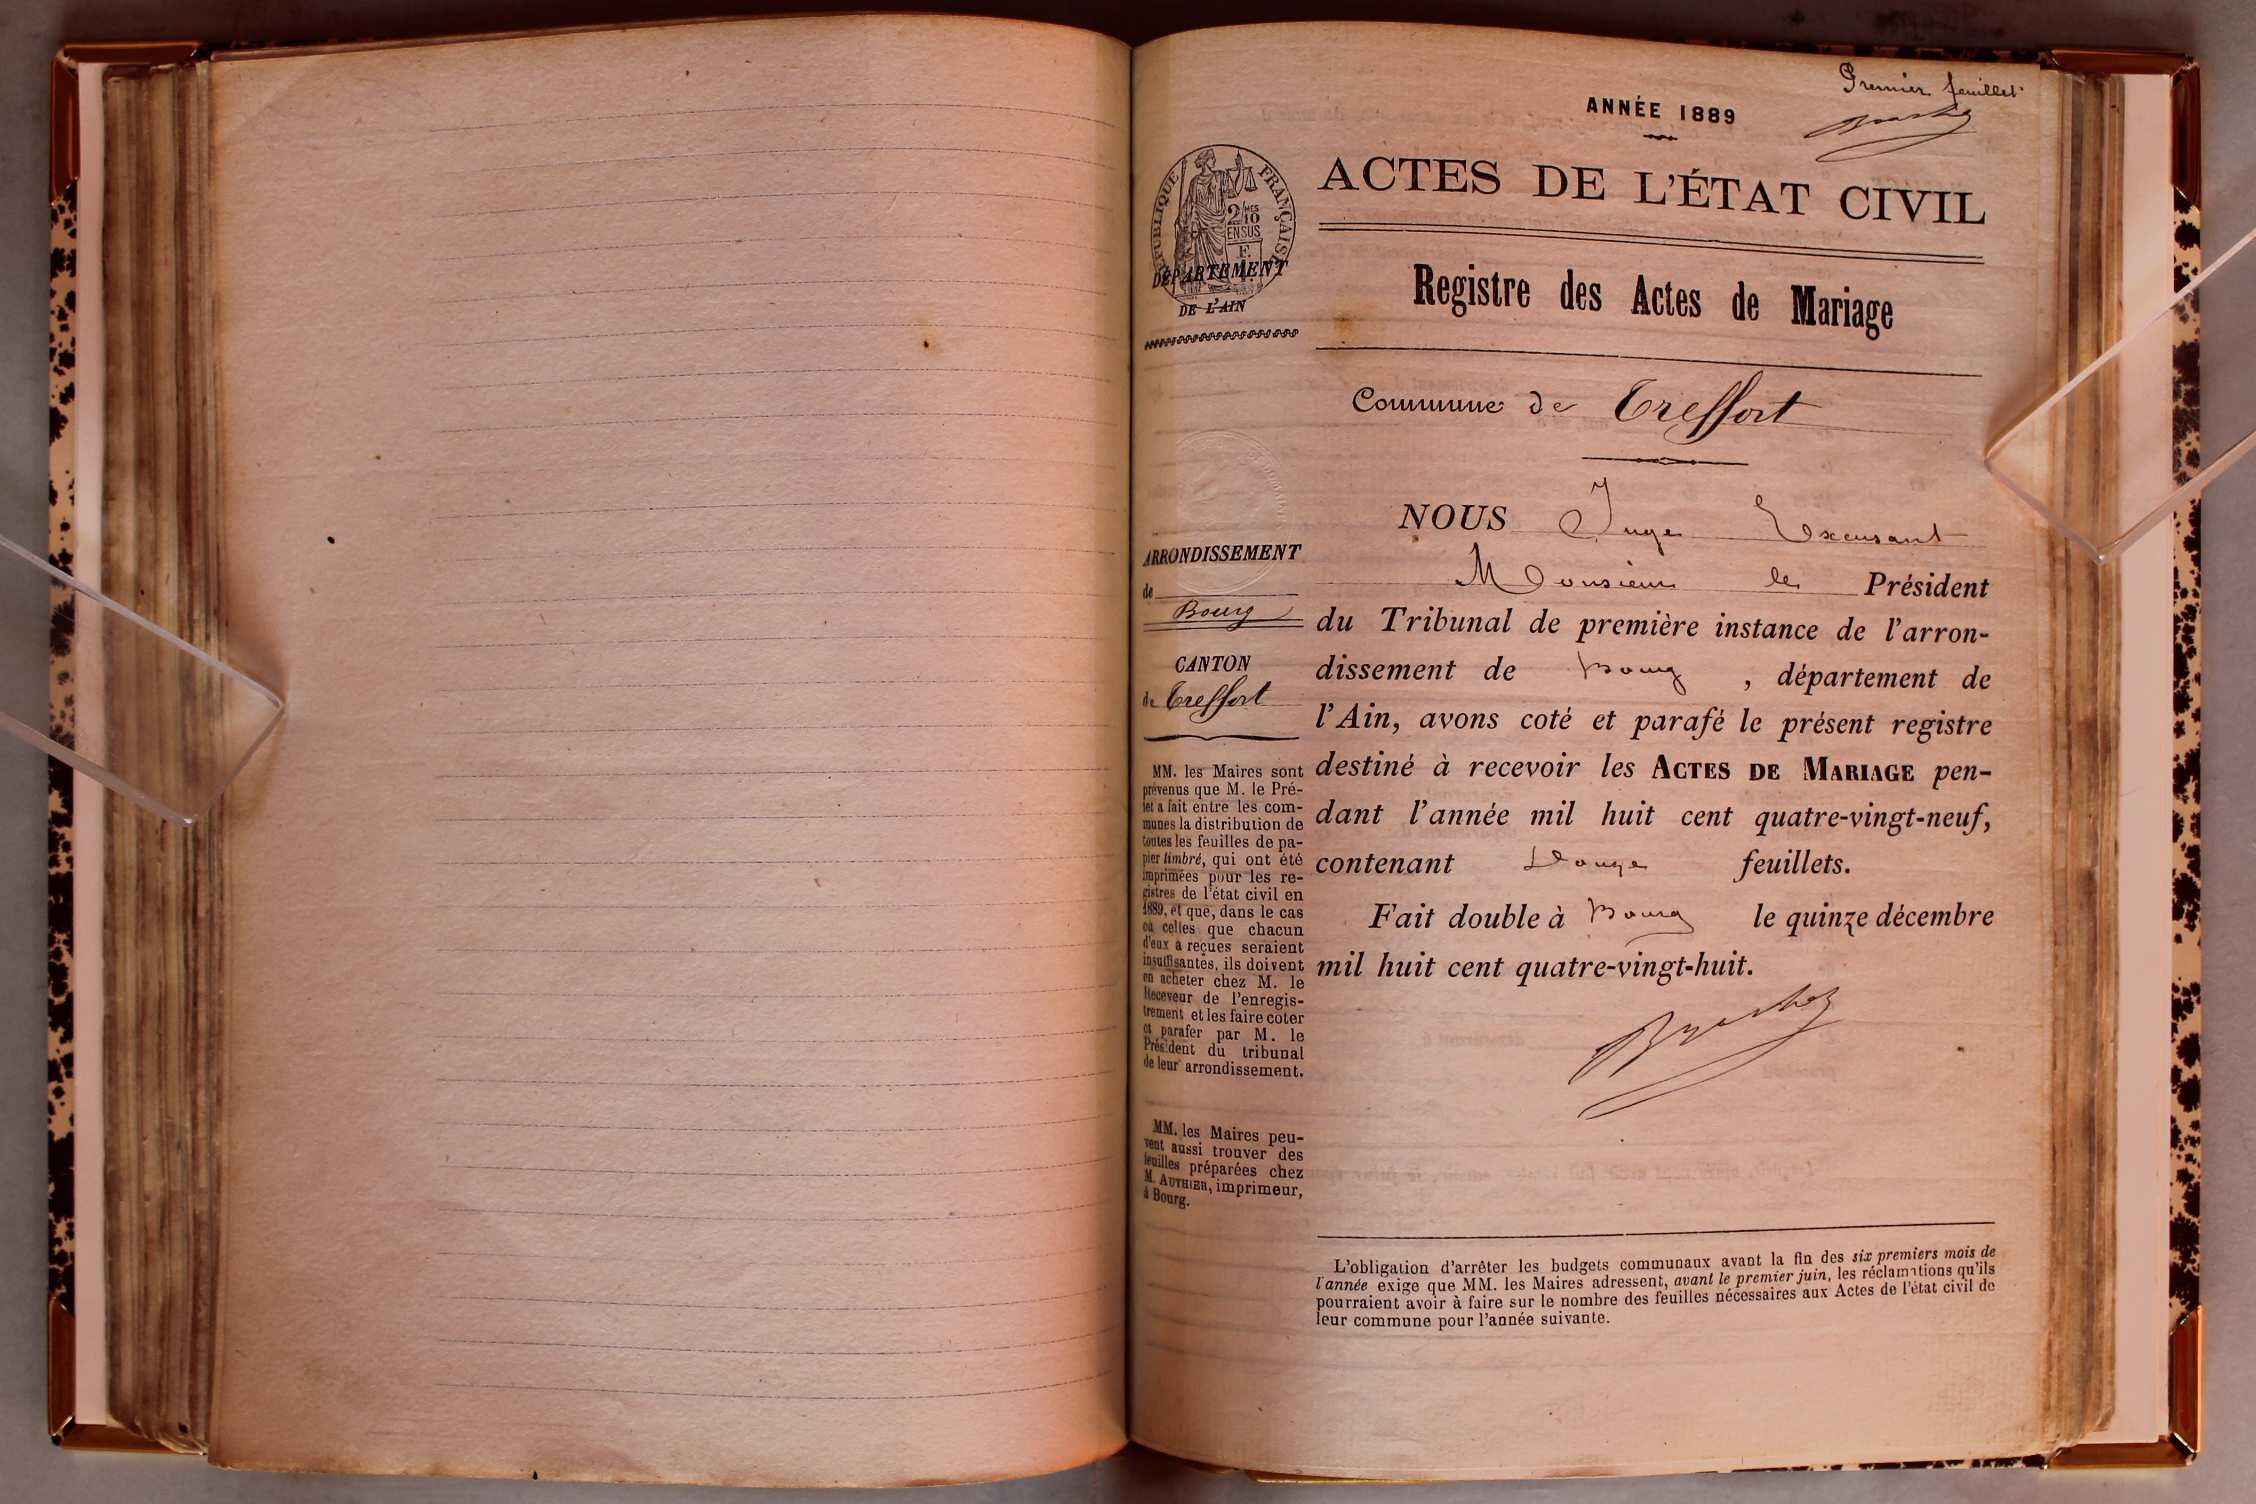 Premier feuillet
ANNÉE 1889
ACTES DE L'ÉTAT CIVIL
RÉPUBLIQUE FRANÇAISE
2/10 MES
EN SUS
DÉPARTEMENT
DE L'AIN
Registre des Actes de Mariage
Commune de Treffort
ARRONDISSEMENT
de
Bourg
CANTON
de Treffort
MM. les Maires sont
prévenus que M. le Pré-
fet a fait entre les com-
munes la distribution de
toutes les feuilles de pa-
pier timbré, qui ont été
imprimées pour les re-
gistres de l'état civil en
1889, et que, dans le cas
où celles que chacun
d'eux a reçues seraient
insuffisantes, ils doivent
en acheter chez M. le
Receveur de l'enregis-
trement et les faire coter
et parafer par M. le
Président du tribunal
de leur arrondissement.
MM. les Maires peu-
vent aussi trouver des
feuilles préparées chez
M. AUTHIER, imprimeur,
à Bourg.
NOUS Juge Excusant
Monsieur le Président
du Tribunal de première instance de l'arron-
dissement de Bourg, département de
l'Ain, avons coté et parafé le présent registre
destiné à recevoir les ACTES DE MARIAGE pen-
dant l'année mil huit cent quatre-vingt-neuf,
contenant Douze feuillets.
Fait double à Bourg le quinze décembre
mil huit cent quatre-vingt-huit.
L'obligation d'arrêter les budgets communaux avant la fin des six premiers mois de
l'année exige que MM. les Maires adressent, avant le premier juin, les réclamations qu'ils
pourraient avoir à faire sur le nombre des feuilles nécessaires aux Actes de l'état civil de
leur commune pour l'année suivante.